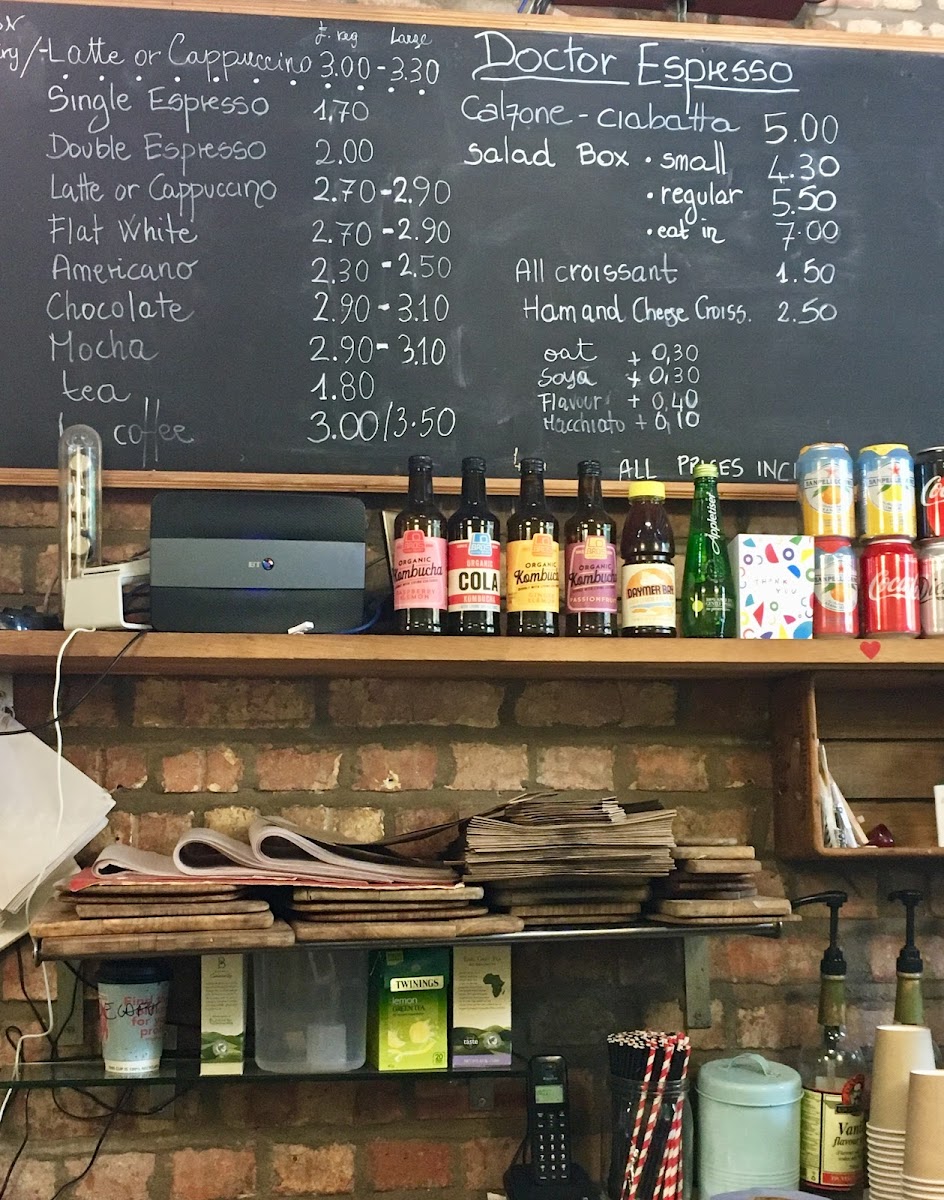 Latte or Cappuccino 3.00 - 3.30
£. reg Large
Single Espresso 1.70
Double Espresso 2.00
Latte or Cappuccino 2.70 - 2.90
Flat White 2.70 - 2.90
Americano 2.30 - 2.50
Chocolate 2.90 - 3.10
Mocha 2.90 - 3.10
tea 1.80
coffee 3.00/3.50
Doctor Espresso
Calzone - ciabatta 5.00
Salad Box • small 4.30
• regular 5.50
• eat in 7.00
All croissant 1.50
Ham and Cheese Croiss. 2.50
oat + 0,30
Soya + 0,30
Flavour + 0,40
Macchiato + 0,10
ALL PRICES INCL
BT
ORGANIC
Kombucha
RASPBERRY
LEMON
BROS
ORGANIC
COLA
KOMBUCHA
ORGANIC
Kombucha
ORGANIC
Kombucha
PASSIONFRUIT
DAYMER BAY
Appletiser
THANK
YOU
SANPELLEGRINO
SANPELLEGRINO
Coca
TWININGS
lemon
GREEN TEA
20
taste
Van
flavou